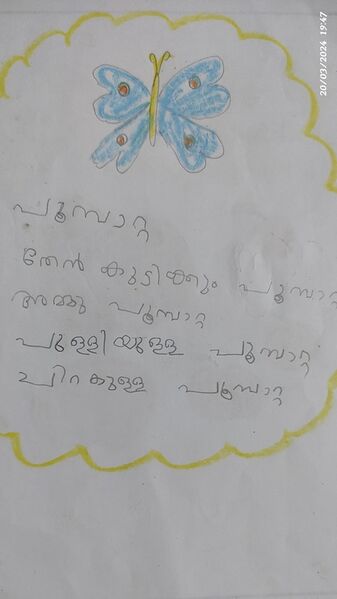 20/03/2024 19:47
പൂമ്പാറ്റ
തേൻ കുടിക്കും പൂമ്പാറ്റ
പൂമ്പാറ്റ
പുള്ളിയുള്ള പൂമ്പാറ്റ
ചിറകുള്ള പൂമ്പാറ്റ